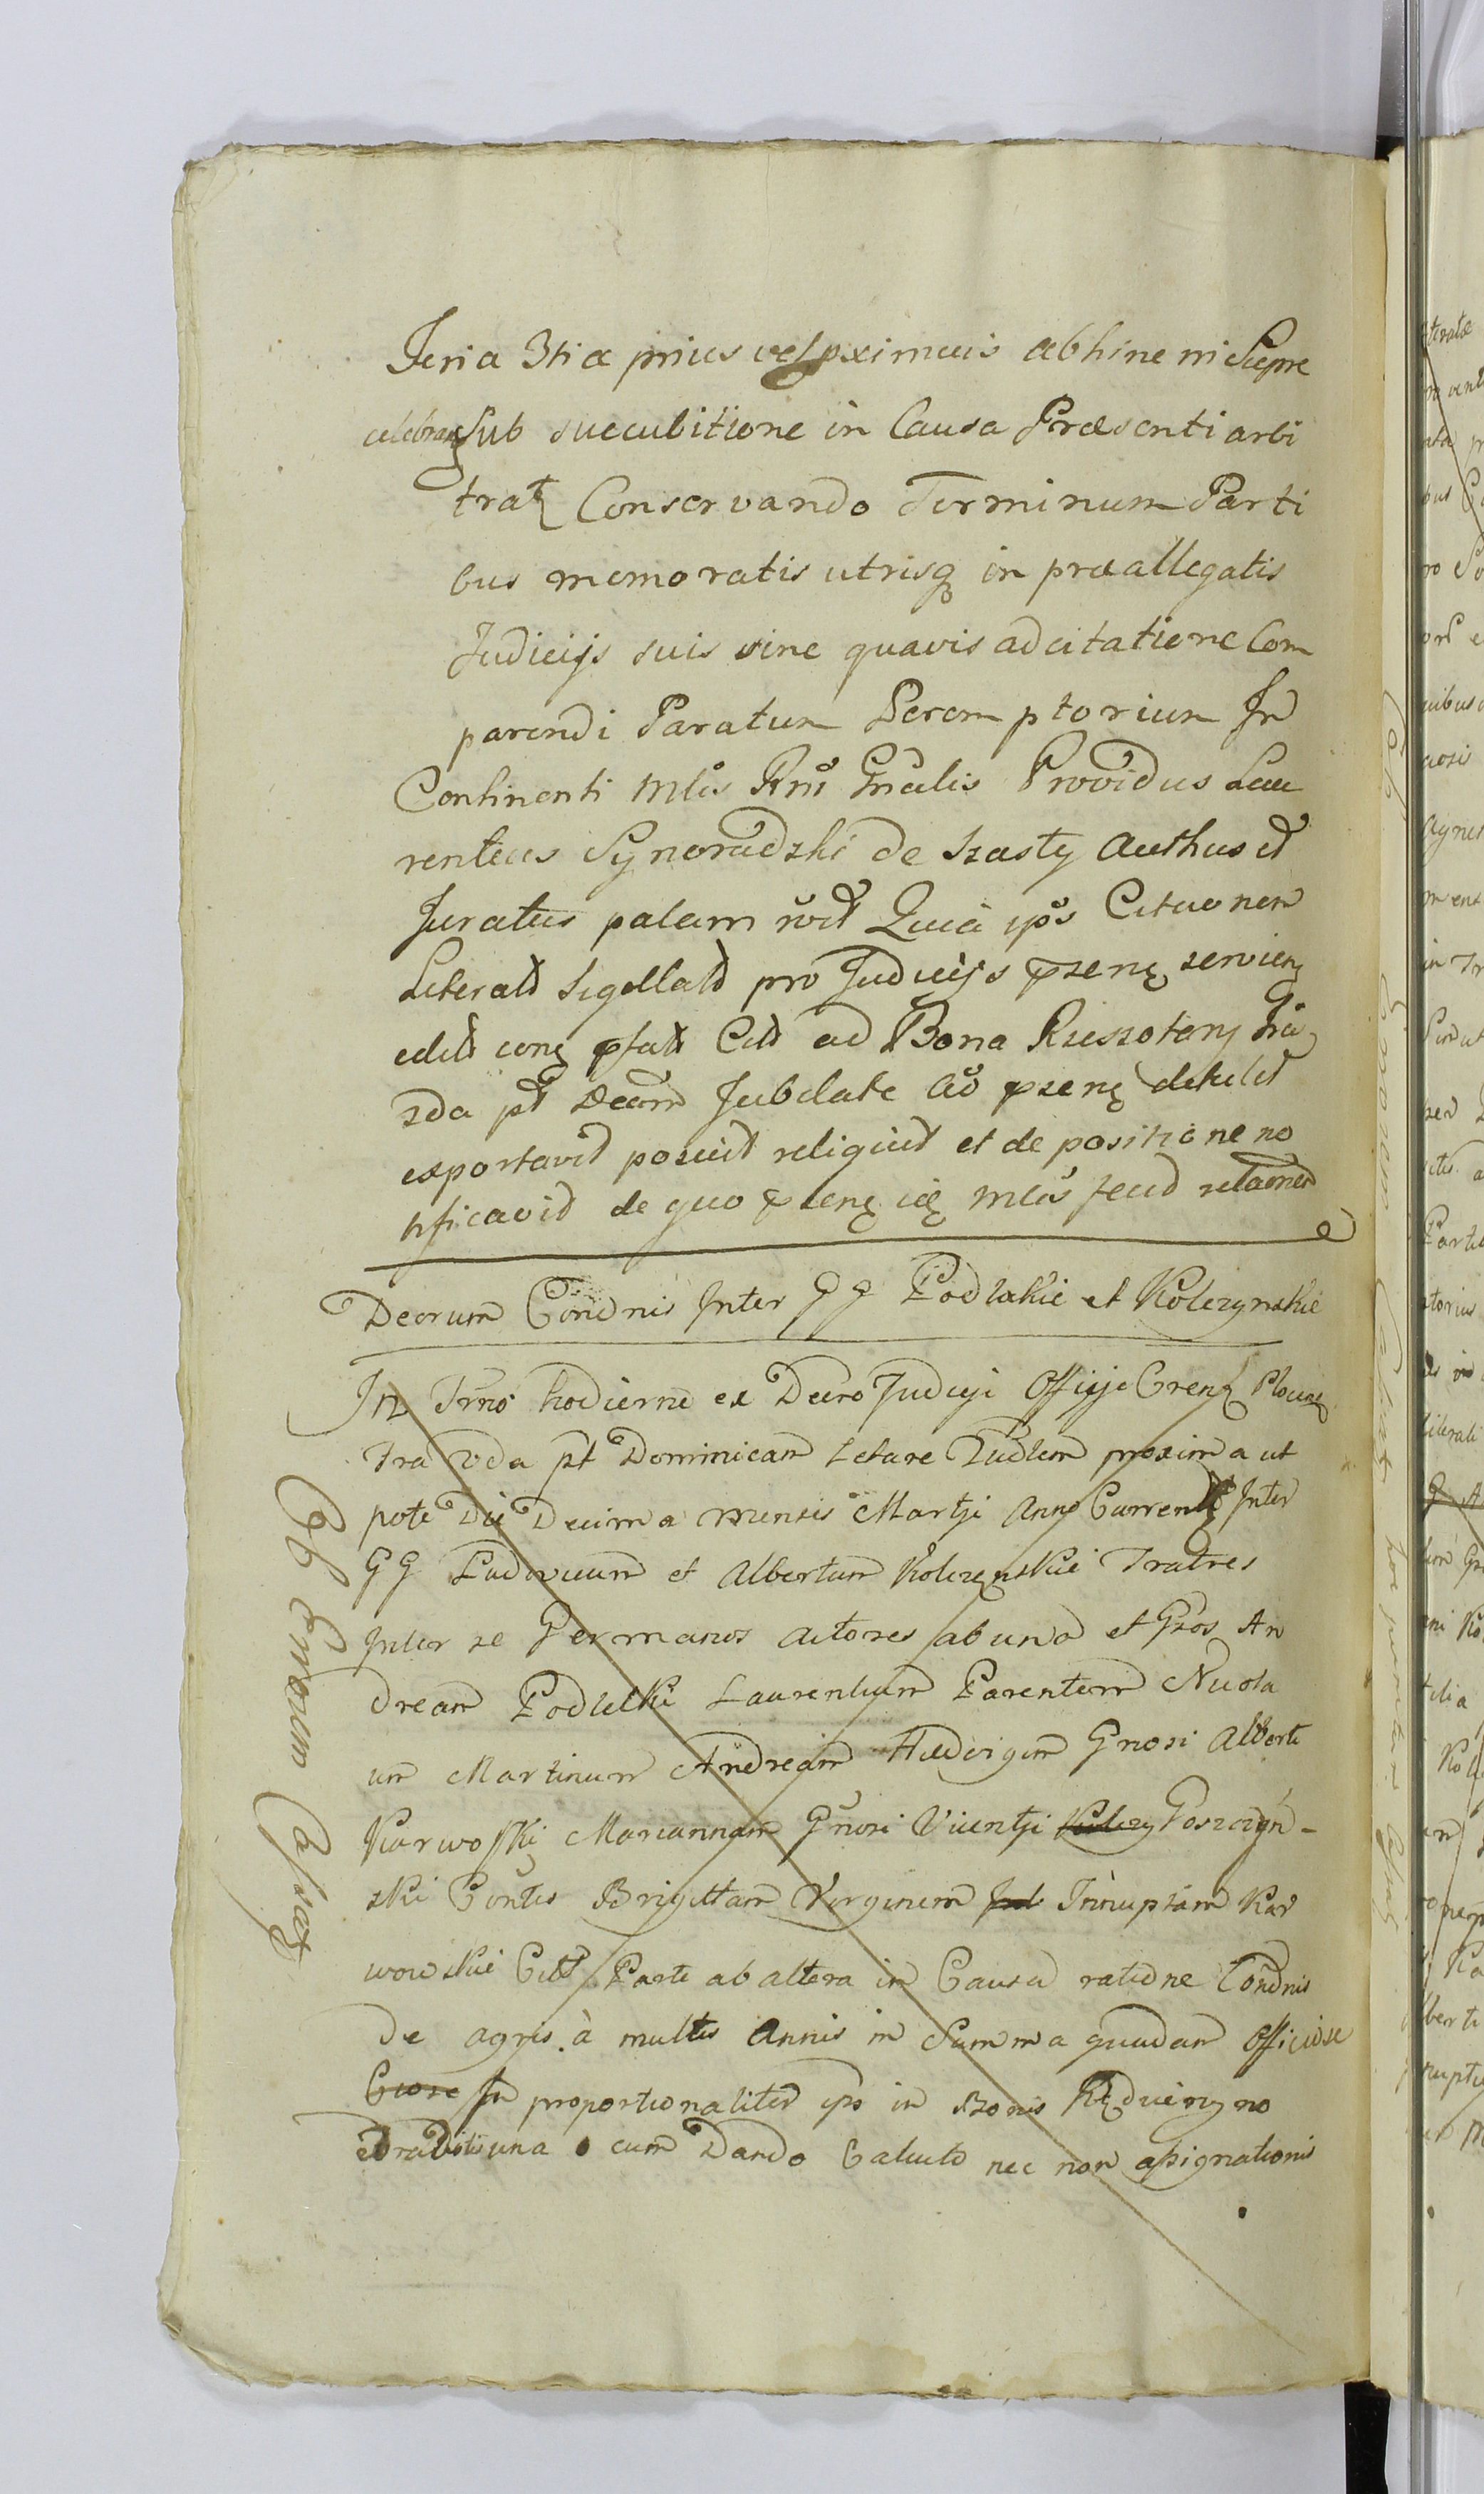 Feria 3tia prius vel pximius abhinc ni Supre
celebranȩ Sub succubitione in Causa Præsenti arbi
tratȩ Conservando Terminum Parti
bus memoratis utrisq in præallegatis
Judicijs suis sine quavis adcitatione Com
parendi Paratum Peremptorium In
Continenti Mlis Rni Gnalis Providus Lau
rentius Synoradzki de Szasty Authus et
Juratus palam
Literal Sigillat pro Judicijs pzenȩ servienȩ
ad Bona
zda pt Jubilate pzenȩ detulit
exportavit posuit reliquit et de positione no
tificavit de quo pzenȩ fecit relaonem
Decrum Condnis Inter GG Podlskie et Kolczynskie
In Trno hodierno ex Decro Judicij Officij Crenȩ Plocenȩ
Fra 2da pt Dominicam Letare Qudlem proxima ut
pote Die Decima mensis Martji Anni Currentȩ Inter
GG Ludovicum et Albertum Kolczynskie Fratres
Inter se Germanos Actores ab una et Gsos An
dream Podleski Laurentium Parentem Nicola
um Martinum Andream Hedvigem Gnosi Alberti
Karwosski Mariannam Gnosi Vicentji Goszczyn-
ski Contes Brigittam Virginem Innuptam Kar
wowskie Citt Parte ab altera in Causa ratione Condnis
De agris à multis Annis in Summa quadam Officiose
In proportionaliter ips in Bonis
una cum Dando Calculo nec non assignationis
Ob Errorem Cassatȩ